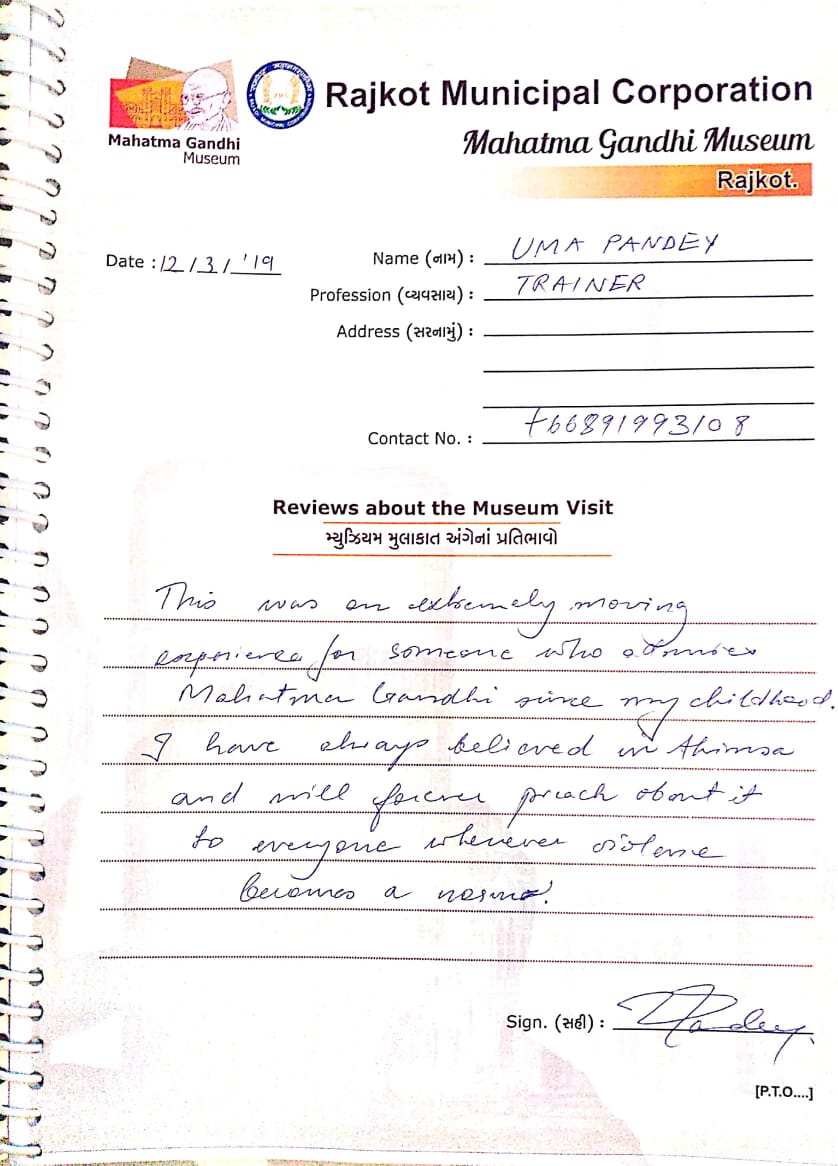 Rajkot Municipal Corporation
Mahatma Gandhi Museum
Mahatma Gandhi Museum
Rajkot.
Date : 12 / 3 / '19
Name (નામ) : UMA PANDEY
Profession (વ્યવસાય) : TRAINER
Address (સરનામું) :
Contact No. : +66891993108
Reviews about the Museum Visit
મ્યુઝિયમ મુલાકાત અંગેનાં પ્રતિભાવો
This was an extremely moving
experience for someone who admires
Mahatma Gandhi since my childhood.
I have always believed in Ahimsa
and will forever preach about it
to everyone whenever violence
becomes a norm.
Sign. (સહી) : Pandey
[P.T.O....]